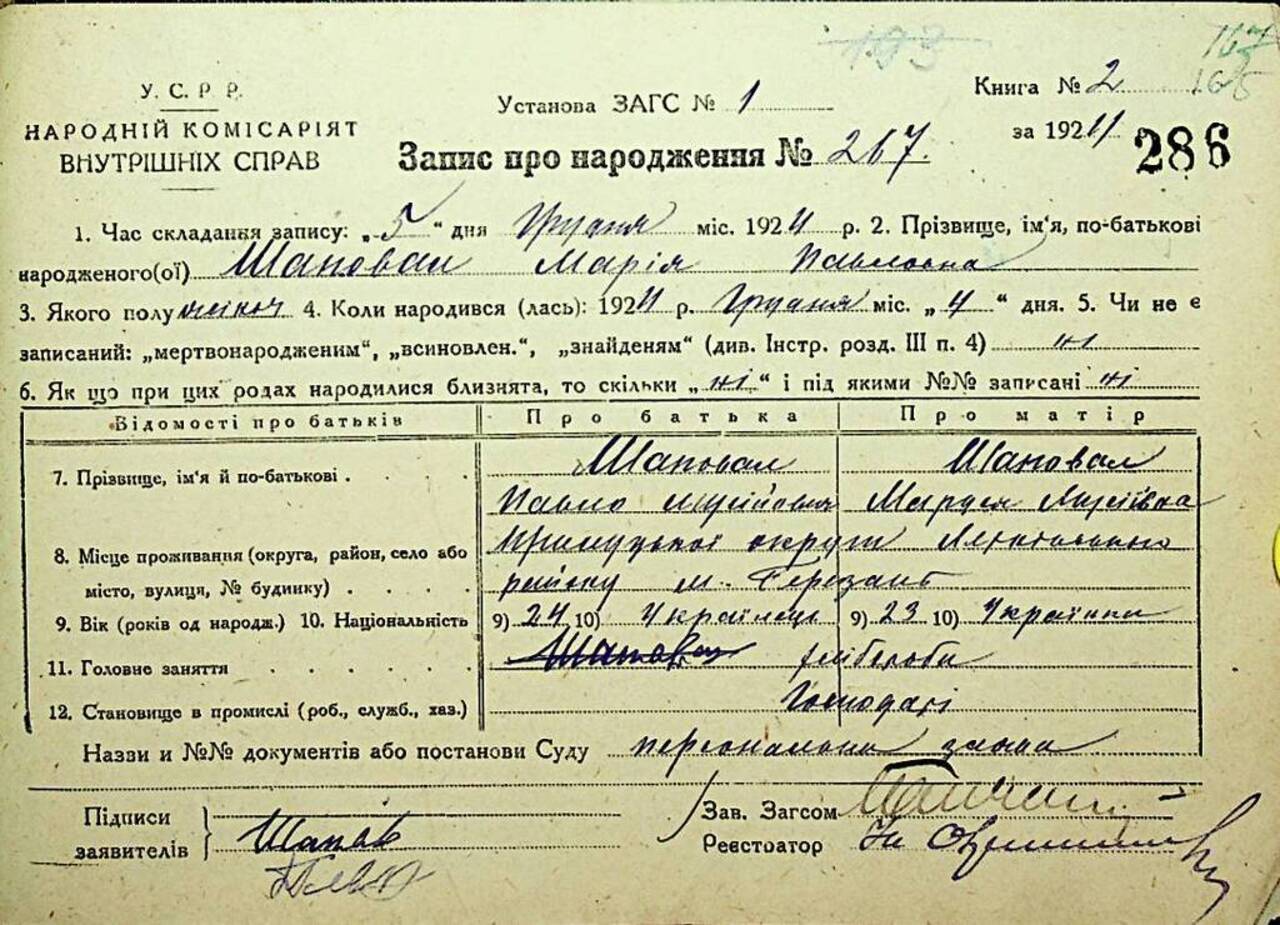 193
167
165
У. С. Р. Р.
НАРОДНІЙ КОМІСАРІЯТ
ВНУТРІШНІХ СПРАВ
Установа ЗАГС № 1
Книга № 2
за 192
Запис про народження № 267.
286
1. Час складання запису: „5“ дня Грудня міс. 192 р. 2. Прізвище, ім'я, по-батькові
народженого(ої) Шаповал Марія Павловна
3. Якого полу жіноч 4. Коли народився (лась): 192 р. Грудня міс. „4“ дня. 5. Чи не є
записаний: „мертвонародженим“, „всиновлен.“, „знайденям“ (див. Інстр. розд. III п. 4) ні
6. Як що при цих родах народилися близнята, то скільки „ні“ і під якими №№ записані ні
Відомості про батьків Про батька Про матір
7. Прізвище, ім'я й по-батькові . Шаповал Шаповал
Павло Маруся
8. Місце проживання (округа, район, село або Прилуцької округи
місто, вулиця, № будинку) району м. Березань
9. Вік (років од народж.) 10. Національність 9) 24 10) Українець 9) 23 10) Українка
11. Головне заняття хлібороби
12. Становище в промислі (роб., служб., хаз.) Господарі
Назви и №№ документів або постанови Суду персональна заява
Підписи
заявителів Шапов
Зав. Загсом
Реєстратор